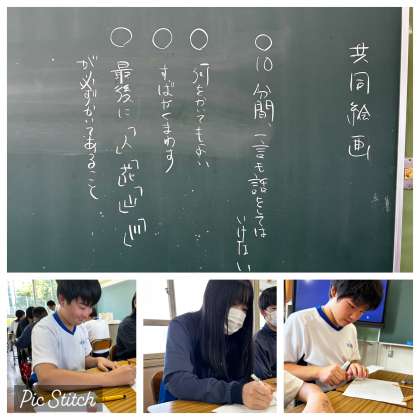 共同絵画
○10分間、一言も話をしては
いけない
○何をかいてもよい
○すばやくまわす
○最後に「人」「花」「山」「川」
が必ずかいてあること
Pic Stitch